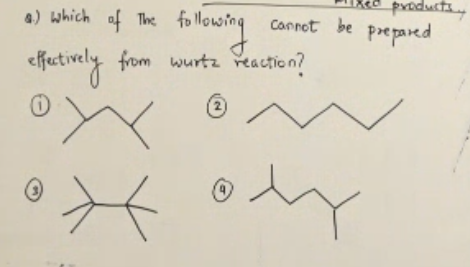 Mixed products,
Q.) Which of The following cannot be prepared
effectively from wurtz reaction?
① ②
③ ④